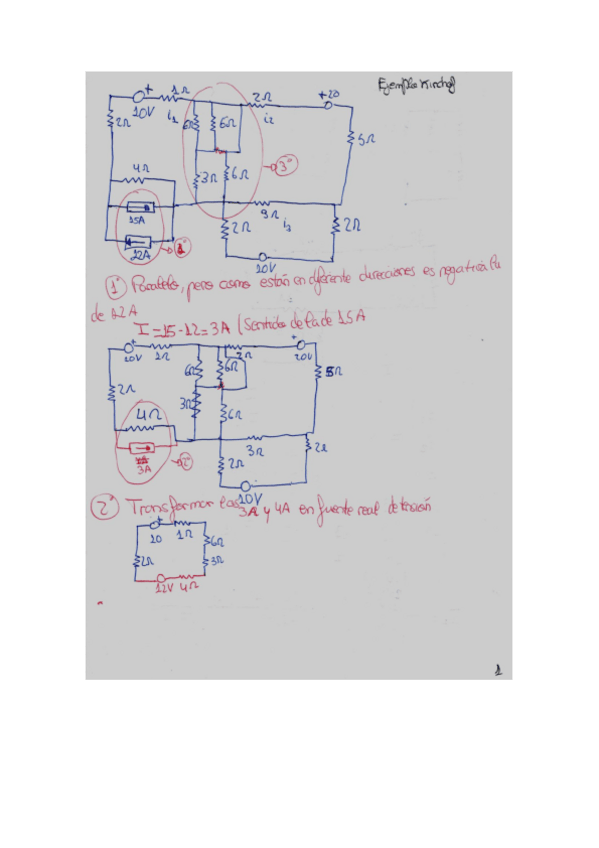 Ejemplo Kirchof
+ 1Ω 2Ω +20
10V i1 6Ω 6Ω i2
2Ω 5Ω
4Ω 3Ω 6Ω 3°
15A 9Ω i3
2Ω 2Ω
12A 1°
10V
1° Paralelo, pero como están en diferente direcciones es negativa la
de 12A
I = 15 - 12 = 3A (Sentido de la de 15A
+ +
10V 1Ω 2Ω 20V
6Ω 6Ω 5Ω
2Ω
4Ω 3Ω 6Ω
3Ω 2Ω
3A 2° 2Ω
10V
2° Transformar las 3A y 4A en fuente real de tensión
+
10 1Ω 6Ω
2Ω 3Ω
12V 4Ω
1